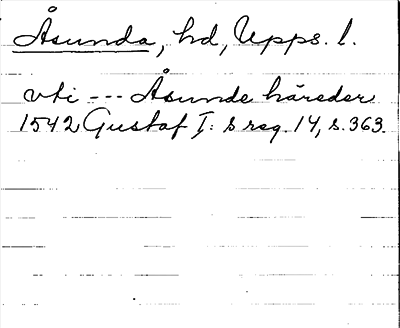 Åsunda, hd, Upps. l.
vti --- Åsunde häreder
1542 Gustaf I: s reg. 14, s. 363.